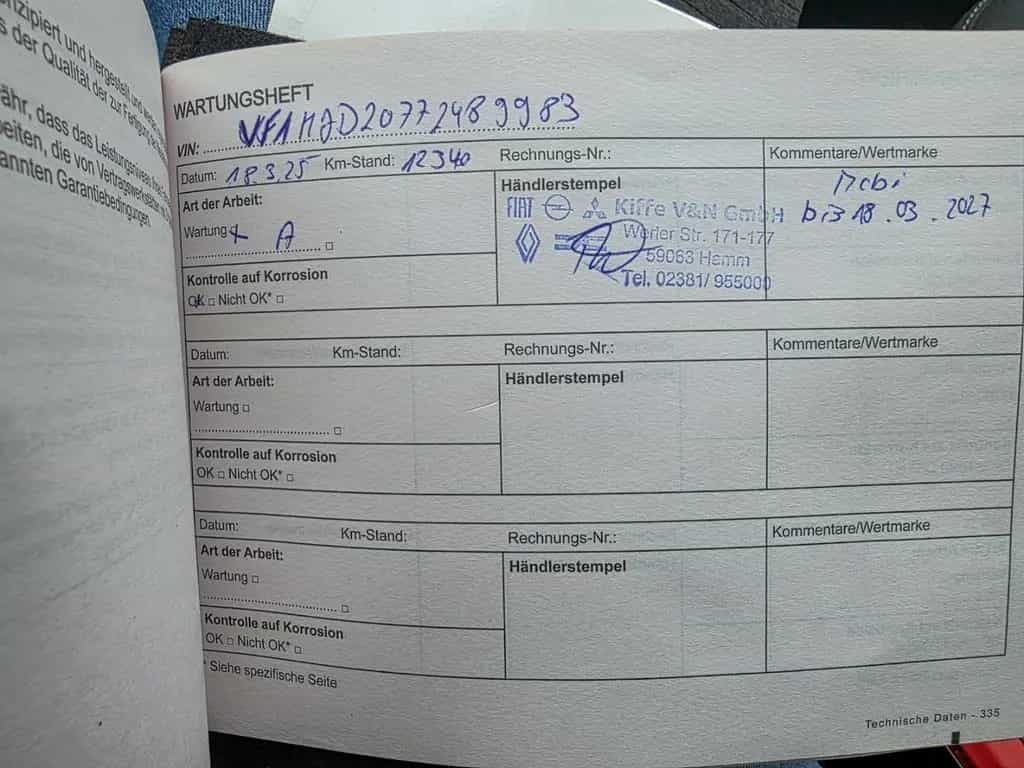 nzipiert und hergestellt und
s der Qualität der zur Fertigung
ähr, dass das Leistungsniveau
beiten, die von Vertragswerkstätten
annten Garantiebedingungen.
WARTUNGSHEFT
VIN: VF1MJD20772489983
Datum: 18.3.25 Km-Stand: 12340 Rechnungs-Nr.: Kommentare/Wertmarke
Art der Arbeit:
Wartung
A
Kontrolle auf Korrosion
OK □ Nicht OK* □
Händlerstempel
FIAT Kiffe V&N GmbH
Werler Str. 171-177
59063 Hamm
Tel. 02381/ 955000
Mobi
bis 18.03.2027
Datum: Km-Stand: Rechnungs-Nr.: Kommentare/Wertmarke
Art der Arbeit:
Wartung □
.............................. □
Kontrolle auf Korrosion
OK □ Nicht OK* □
Händlerstempel
Datum: Km-Stand: Rechnungs-Nr.: Kommentare/Wertmarke
Art der Arbeit:
Wartung □
.............................. □
Kontrolle auf Korrosion
OK □ Nicht OK* □
Händlerstempel
* Siehe spezifische Seite
Technische Daten - 335